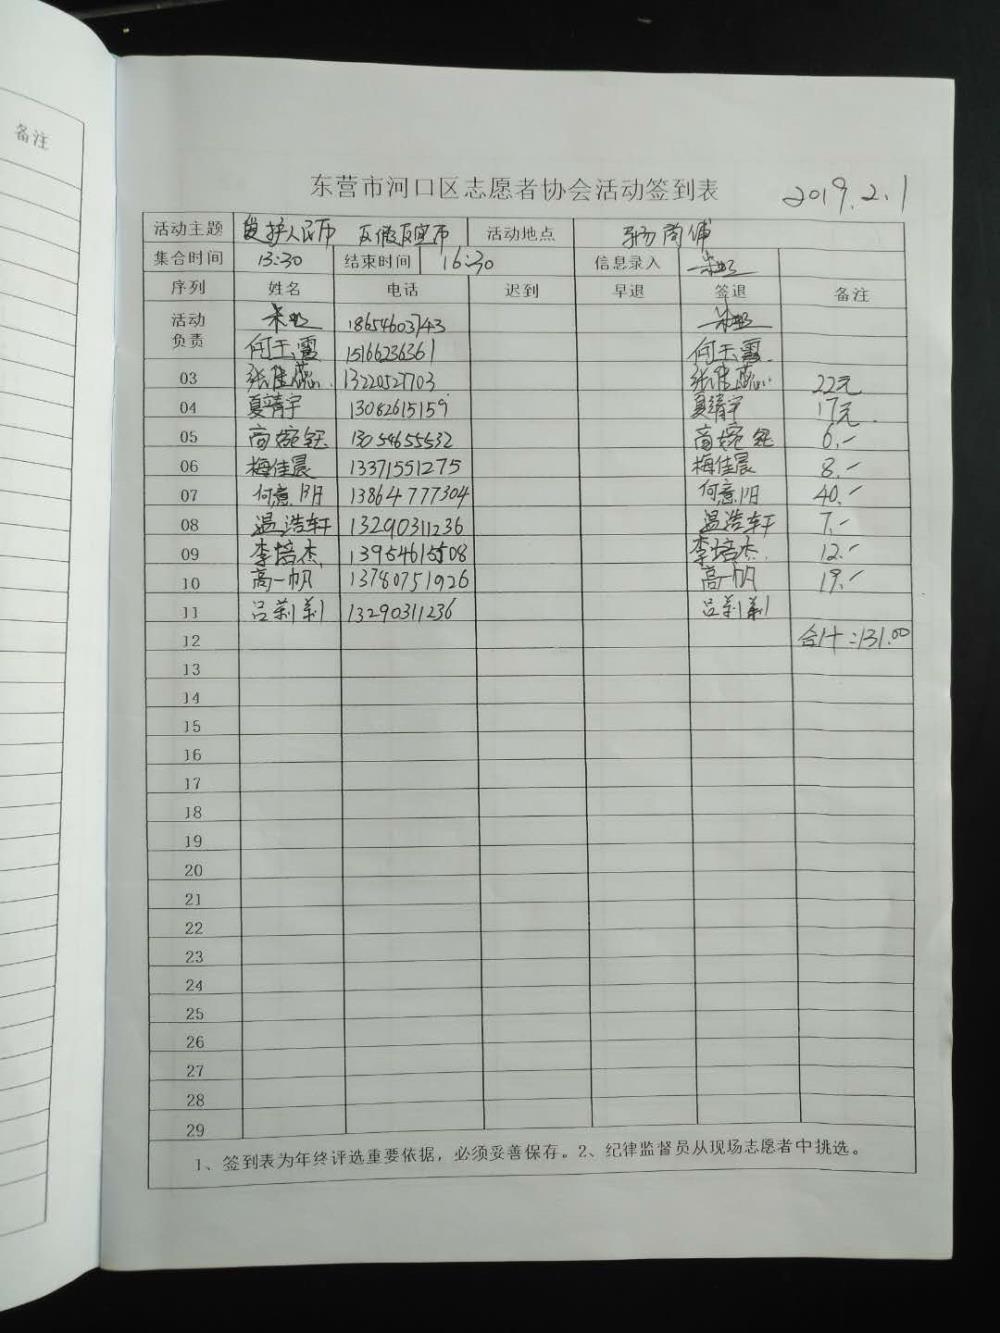 备注
东营市河口区志愿者协会活动签到表 2019.2.1
活动主题 爱护人民币 反假反宣币 活动地点
集合时间 13:30 结束时间 16:30 信息录入
序列 姓名 电话 迟到 早退 签退 备注
活动负责 18654603743
何玉霞 15166236361 何玉霞
03 张佳蕊 13220527703 张佳蕊 22元
04 夏靖宇 13082615159 夏靖宇 17元
05 高婉钰 13054655532 高婉钰 6.-
06 梅佳晨 13371551275 梅佳晨 8.-
07 何意阳 13864777304 何意阳 40.-
08 温浩轩 13290311236 温浩轩 7.-
09 李培杰 13954615508 李培杰 12.-
10 高一帆 13780751926 高一帆 19.-
11 吕莉莉 13290311236 吕莉莉
12 合计:131.00
13
14
15
16
17
18
19
20
21
22
23
24
25
26
27
28
29
1、签到表为年终评选重要依据，必须妥善保存。2、纪律监督员从现场志愿者中挑选。